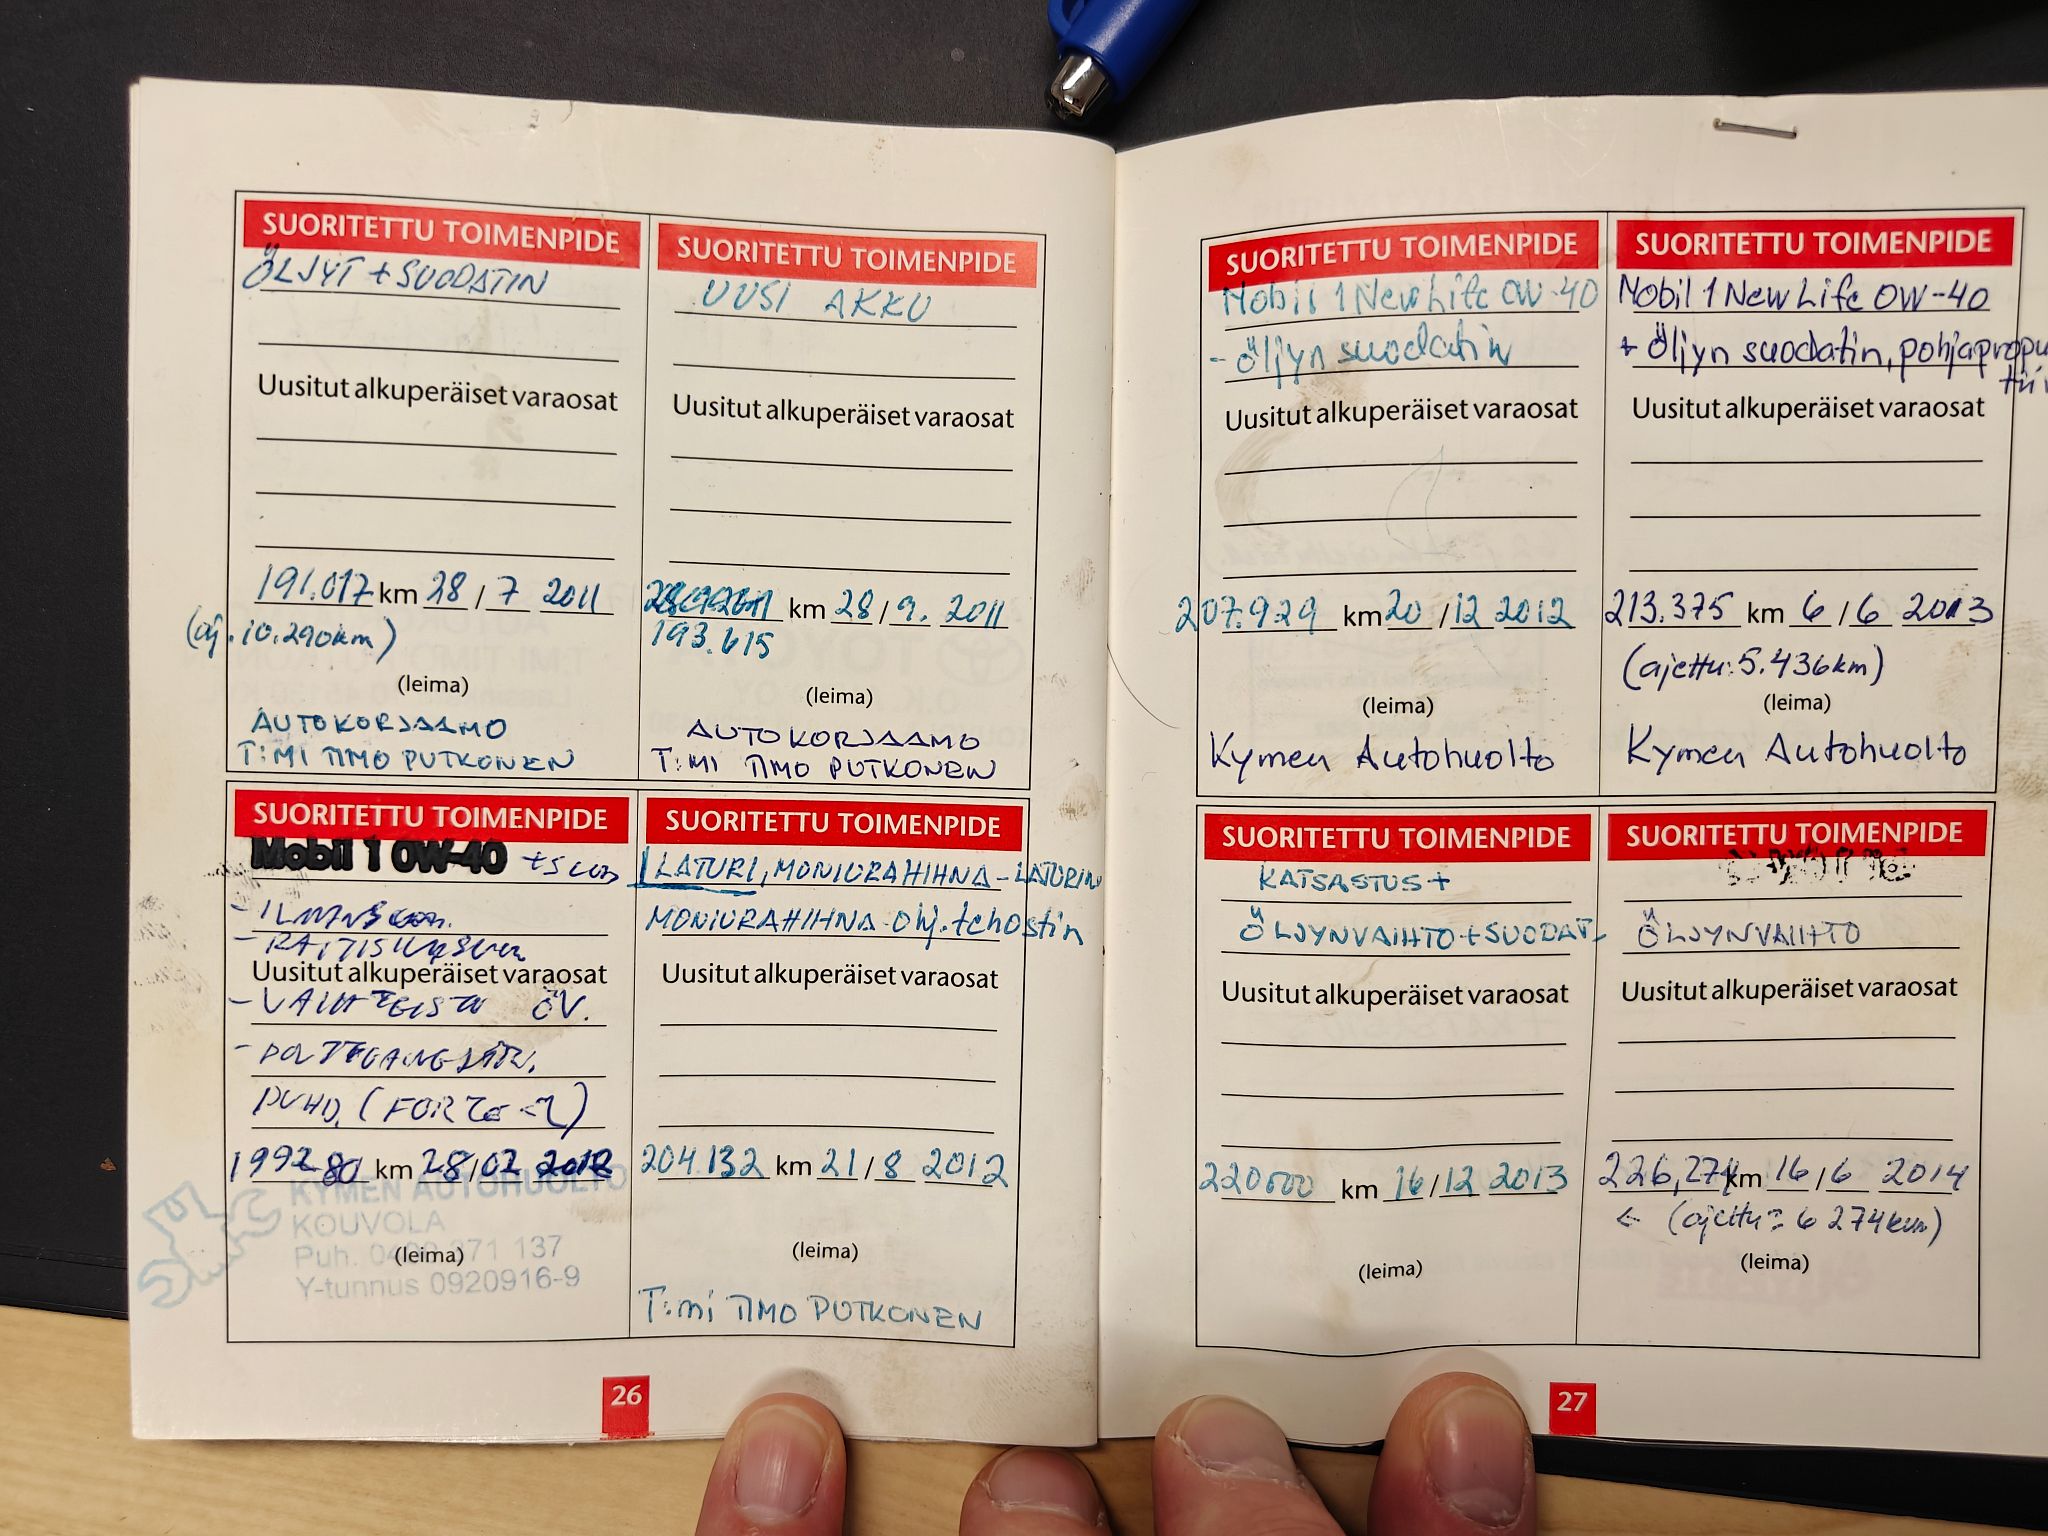 SUORITETTU TOIMENPIDE
ÖLJYT + SUODATIN
Uusitut alkuperäiset varaosat
191.017 km 28 / 7 2011
(aj. 10.290km)
(leima)
AUTOKORJAAMO
T:MI TIMO PUTKONEN
SUORITETTU TOIMENPIDE
UUSI AKKU
Uusitut alkuperäiset varaosat
km 28 / 9. 2011
193.615
(leima)
AUTOKORJAAMO
T:MI TIMO PUTKONEN
SUORITETTU TOIMENPIDE
Mobil 1 0W-40
Uusitut alkuperäiset varaosat
ÖV.
199280 km 28/02 2012
KYMEN AUTOHUOLTO
KOUVOLA
Puh. 371 137
(leima)
Y-tunnus 0920916-9
SUORITETTU TOIMENPIDE
LATURI, MONIURAHIHNA - LATURIN
MONIURAHIHNA Ohj. tehostin
Uusitut alkuperäiset varaosat
204.132 km 21 / 8 2012
(leima)
T:mi TIMO PUTKONEN
26
SUORITETTU TOIMENPIDE
Mobil 1 New Life 0W-40
- Öljyn suodatin
Uusitut alkuperäiset varaosat
207.929 km 20 / 12 2012
(leima)
Kymen Autohuolto
SUORITETTU TOIMENPIDE
Mobil 1 New Life 0W-40
+ Öljyn suodatin, pohjapropu
Uusitut alkuperäiset varaosat
213.375 km 6 / 6 2013
(ajettu: 5.436km)
(leima)
Kymen Autohuolto
SUORITETTU TOIMENPIDE
KATSASTUS +
ÖLJYNVAIHTO + SUODAT.
Uusitut alkuperäiset varaosat
220000 km 16 / 12 2013
(leima)
SUORITETTU TOIMENPIDE
ÖLJYNVAIHTO
Uusitut alkuperäiset varaosat
226,274 km 16 / 6 2014
← (ajettu = 6 274km)
(leima)
27